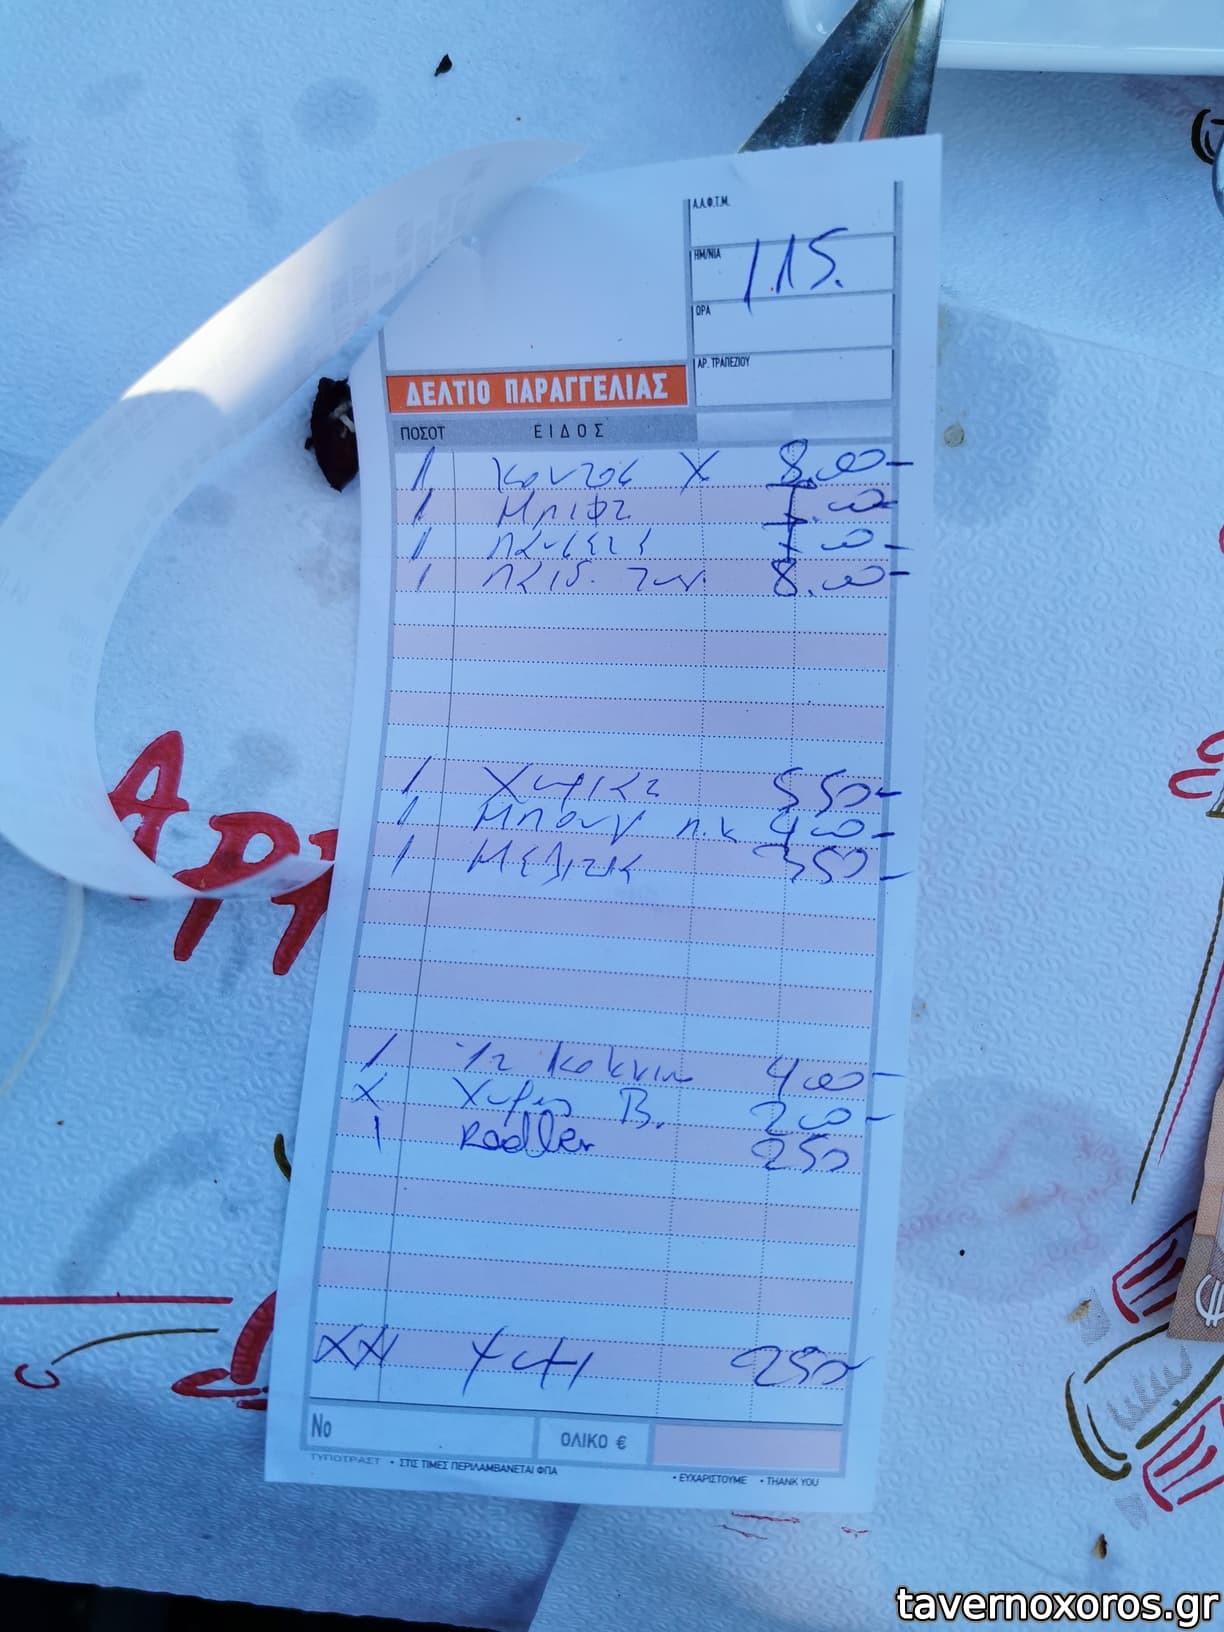 Α.Α.Φ.Τ.Μ.
ΗΜ/ΝΙΑ
115.
ΩΡΑ
ΑΡ. ΤΡΑΠΕΖΙΟΥ
ΔΕΛΤΙΟ ΠΑΡΑΓΓΕΛΙΑΣ
ΠΟΣΟΤ ΕΙΔΟΣ
1 Κοντοσ Χ 8.00-
1 Μπιφτ 7.00-
1 Πανσετ 7.00-
1 Παιδ. 8.00-
1 Χωριατ 550-
1 Μπουγ π.κ 400-
1 Μελιτζ 350-
ΑΡΓ
1 1/2 Κοκκιν 400-
Χ Β. 200-
1 Radler 250
Ψωμι 250
Νο
ΟΛΙΚΟ €
ΤΥΠΟΤΡΑΣΤ • ΣΤΙΣ ΤΙΜΕΣ ΠΕΡΙΛΑΜΒΑΝΕΤΑΙ ΦΠΑ
• ΕΥΧΑΡΙΣΤΟΥΜΕ • THANK YOU
tavernoxoros.gr